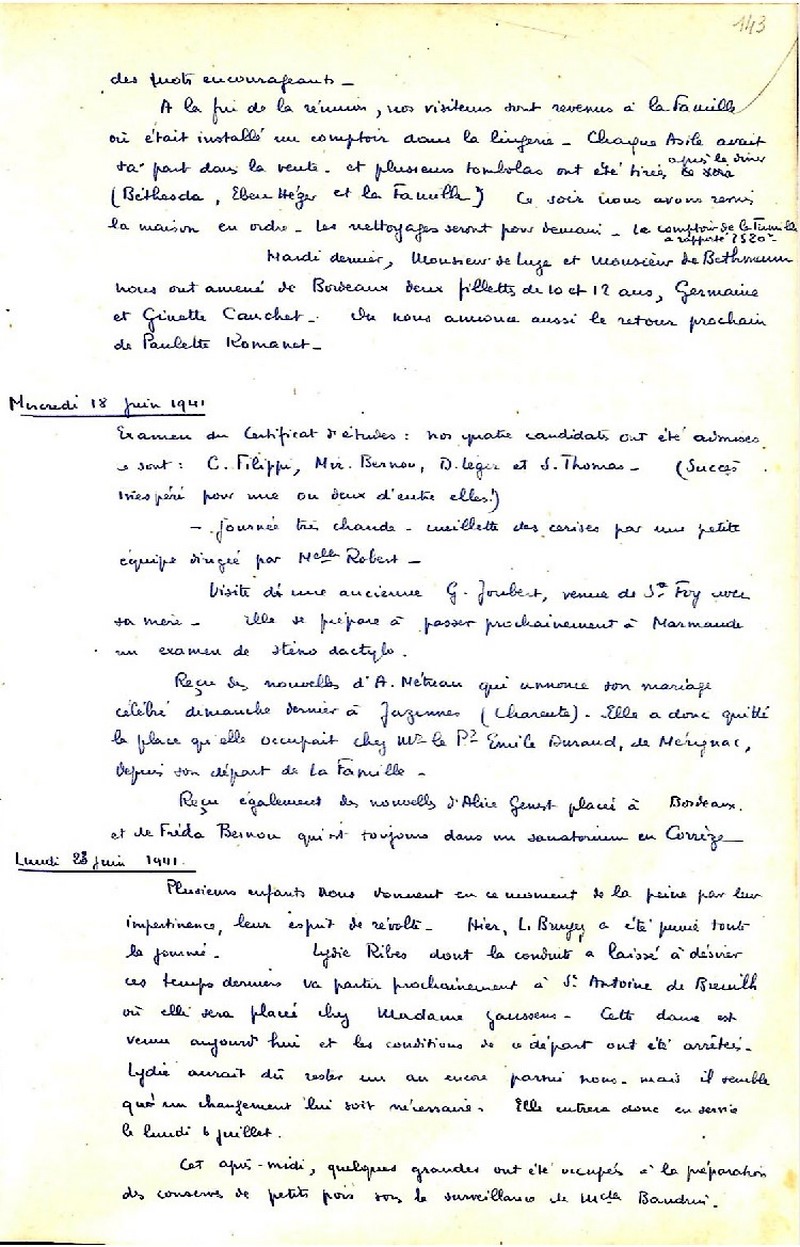 143
des mots encourageants -
A la fin de la réunion, nos visiteurs sont revenus à la Famille
où était installé un comptoir dans la lingerie - Chaque Asile avait
sa part dans la vente - et plusieurs tombolas ont été tirées après le dîner
(Béthesda, Eben Hézer et la Famille) Ce soir nous avons remis
la maison en ordre - les nettoyages seront pour demain - le comptoir de la Famille
a rapporté 1520f -
Mardi dernier, Monsieur de Luze et Monsieur de Bethmann
nous ont amené de Bordeaux deux fillettes de 10 et 12 ans, Germaine
et Ginette Cauchet - On nous annonce aussi le retour prochain
de Paulette Romanet -
Mercredi 18 Juin 1941
Examen du Certificat d'études : nos quatre candidats ont été admises
ce sont : C. Filippi, Mir. Bernou, D. Léger et S. Thomas - (Succès
inespéré pour une ou deux d'entre elles!)
- journée très chaude - cueillette des cerises par une petite
équipe dirigée par Melle Robert -
Visite d'une ancienne G. Joubert, venue de Ste Foy avec
sa mère - Elle se prépare à passer prochainement à Marmande
un examen de sténo dactylo.
Reçu des nouvelles d'A. Métreau qui annonce son mariage
célébré dimanche dernier à Jazennes (Charente) - Elle a donc quitté
la place qu'elle occupait chez Mr le Pr Emile Durand, de Mérignac,
depuis son départ de la Famille -
Reçu également des nouvelles d'Alice Genest placée à Bordeaux.
et de Frida Bernou qui est toujours dans un sanatorium en Corrèze
Lundi 23 Juin 1941.
Plusieurs enfants nous donnent en ce moment de la peine par leur
impertinence, leur esprit de révolte - Hier, L. a été punie toute
la journée - Lydie Ribes dont la conduite a laissé à désirer
ces temps derniers va partir prochainement à St Antoine de Breuilh
où elle sera placée chez Madame Gaussens - Cette dame est
venue aujourd'hui et les conditions de ce départ ont été arrêtées -
Lydie aurait dû rester un an encore parmi nous - mais il semble
qu'un changement lui soit nécessaire. Elle entrera donc en service
le lundi 6 juillet.
Cet après-midi, quelques grandes ont été occupées à la préparation
des conserves de petits pois sous la surveillance de Melle